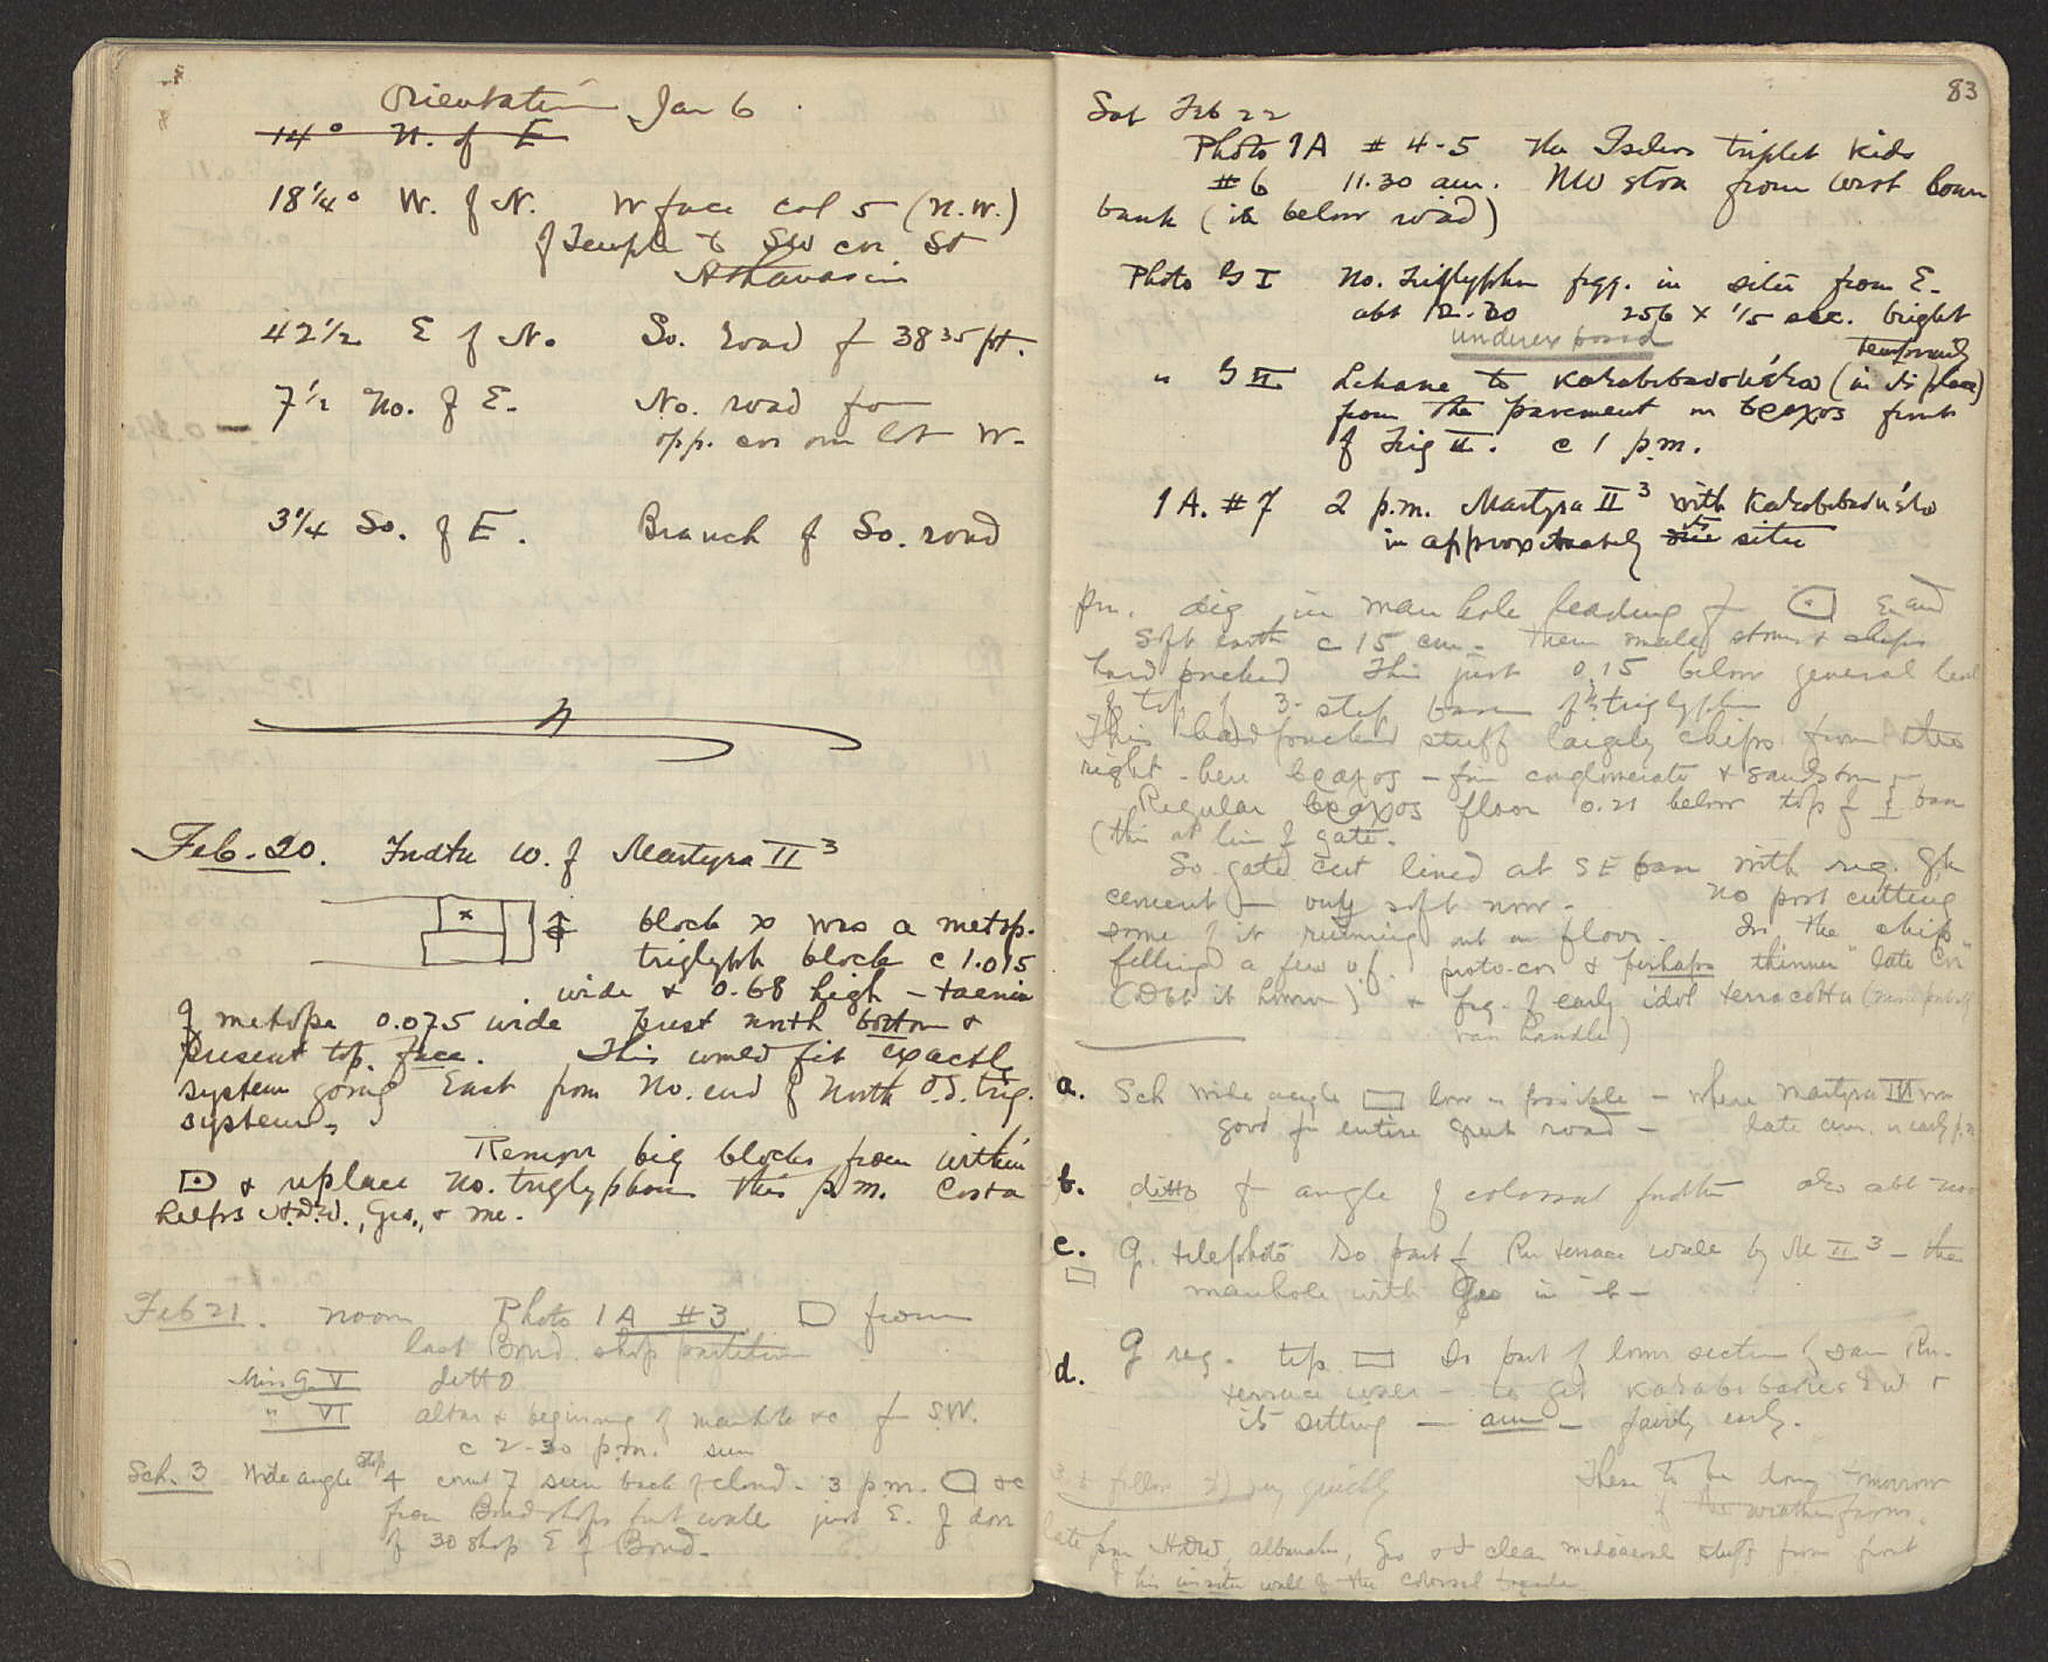 Orientation Jan 6
14° N. of E
18 1/4° W. of N. W face col 5 (N.W.)
of Temple to SW cor St
Athanasius
42 1/2 E of N. So. road f 3835 pt.
7 1/2 No. of E. No. road from
opp. cor our lot W.
3 1/4 So. of E. Branch of So. road
Feb. 20. Fndtn W. of Martyra II 3
x
block x was a metop.
triglyph block c 1.015
wide & 0.68 high – taenia
of metope 0.075 wide just north bottom &
present top face. This would fit exactly
system going East from No. end of North O.S. trig.
system.
Remove big blocks from within
& replace No. triglyphon this p.m. Costa
helps A.D.W., Geo., & me.
Feb 21. noon Photo 1A #3 from
last Boud. shop partition
Min G. V ditto
" VI altar & beginning of manhole &c f S.W.
c 2-30 p.m. sun
Sch. 3 Wide angle stop 4 count 7 sun back of cloud - 3 p.m. &c
from Boud shops front wall just E. of door
of 30 shop E of Boud.
83
Sat Feb 22
Photo 1A # 4-5 the triplet kids
#6 11.30 am. NW stoa from west
bank (is below road)
Photo G I No. triglyphon frgg. in situ from E.
abt 12.20 256 x 1/5 sec. bright
underexposed
temporarily
" G II Lekane to (in its place)
from the pavement in βραχος front
of Trig II. c 1 p.m.
1A. #7 2 p.m. Martyra II 3 with
in approximately its situ
pm. dig in man hole leading f E and
Soft earth c 15 cm. Then small stones & chips
hard packed This just 0.15 below general level
of top of 3-step base of triglyphon
This hard packed stuff largely chips from the
right here βραχος – fine conglomerate & sandstone –
Regular βραχος floor 0.21 below top of base
(this at line of gate.
So. gate cut lined at SE base with reg. Gk
cement – only soft now. No post cutting
some of it running out on floor. In the chip
filling a few v.f. proto-cor & perhaps thinner "late Cor"
(Dbt it however) & frg. of early idol terracotta
van handle)
a. Sch wide angle low as possible – where Martyra III
good for entire Greek road – late am. or early p.m.
b. ditto f angle of colossal fndtn also abt noon
c. G. telephoto So part of Rm terrace wall by M II 3 – the
manhole with Geo in it –
d. G reg. top So part of lower section of same Rm.
terrace wall – to get &
its setting – am – fairly early.
These to be done tomorrow
if the weather favors.
late pm ADW, Geo & I clear mediaeval stuff from front
& his in situ wall of the colossal